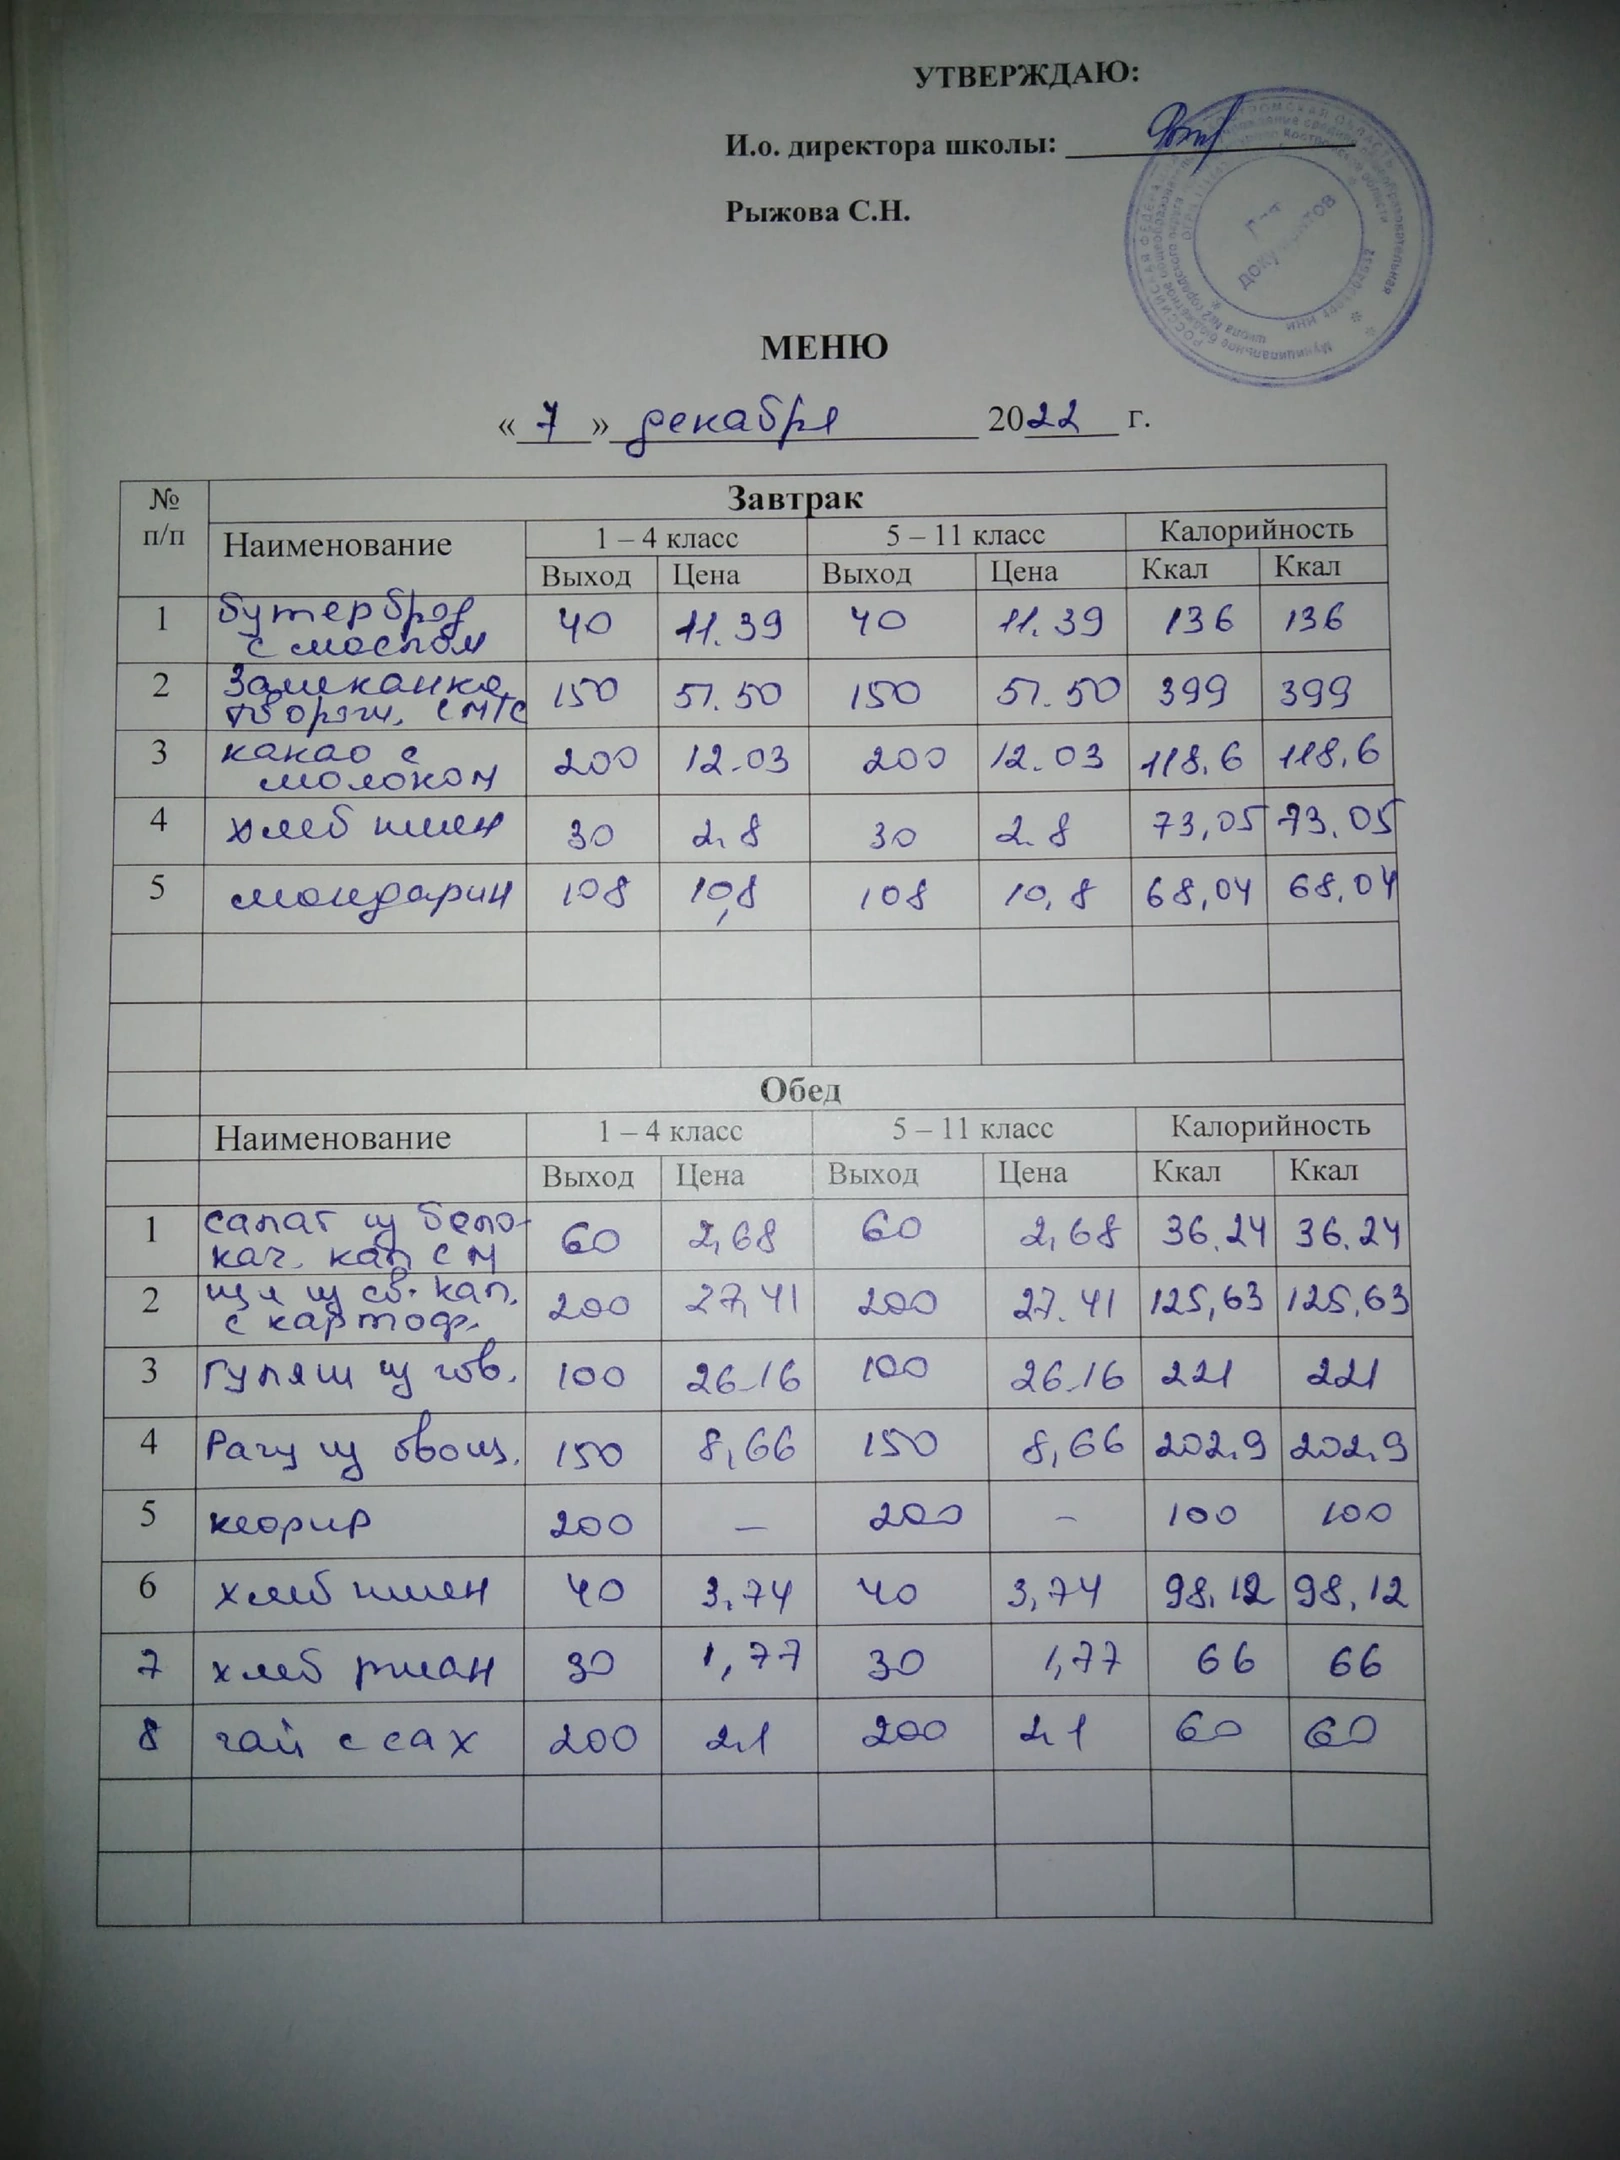 УТВЕРЖДАЮ:
И.о. директора школы:
Рыжова С.Н.
МЕНЮ
« 7 » декабря 2022 г.
№ п/п Завтрак
Наименование 1 – 4 класс 5 – 11 класс Калорийность
Выход Цена Выход Цена Ккал Ккал
1 бутерброд 40 11.39 40 11.39 136 136
с маслом
2 Запеканка 150 51.50 150 51.50 399 399
творяж. с м/с
3 какао с 200 12.03 200 12.03 118,6 118,6
молоком
4 хлеб пшен 30 2,8 30 2.8 73,05 73,05
5 мандарин 108 10,8 108 10,8 68,04 68,04
Обед
Наименование 1 – 4 класс 5 – 11 класс Калорийность
Выход Цена Выход Цена Ккал Ккал
1 салат из бело- 60 2,68 60 2,68 36.24 36.24
кач. кап с м
2 щи из св. кап. 200 27,41 200 27.41 125,63 125,63
с картоф.
3 гуляш из гов. 100 26.16 100 26.16 221 221
4 Рагу из овощ. 150 8,66 150 8,66 202,9 202,9
5 кефир 200 – 200 – 100 100
6 хлеб пшен 40 3,74 40 3,74 98,12 98,12
7 хлеб ржан 30 1,77 30 1,77 66 66
8 чай с сах 200 2,1 200 2,1 60 60